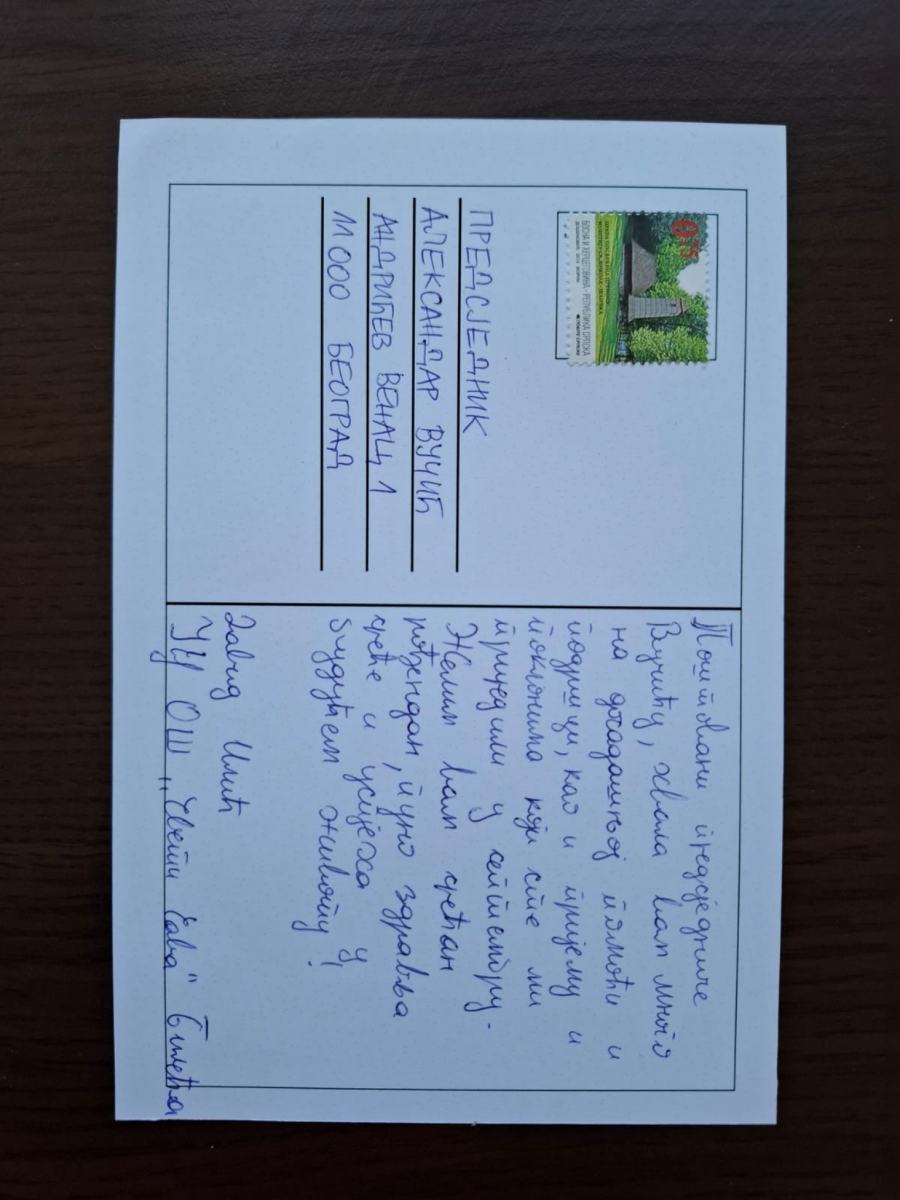 Поштовани предсједниче
Вучићу, хвала вам много
на досадашњој помоћи и
подршци, као и пријему и
поклонима који сте ми
приредили у септембру.
Желим вам срећан
рођендан, пуно здравља
среће и успјеха у
будућем животу!
Давид Илић
УЦ ОШ „Свети Сава" Билећа
0.75
БОСНА И ХЕРЦЕГОВИНА - РЕПУБЛИКА СРПСКА
ПРЕДСЈЕДНИК
АЛЕКСАНДАР ВУЧИЋ
АНДРИЋЕВ ВЕНАЦ 1
11000 БЕОГРАД